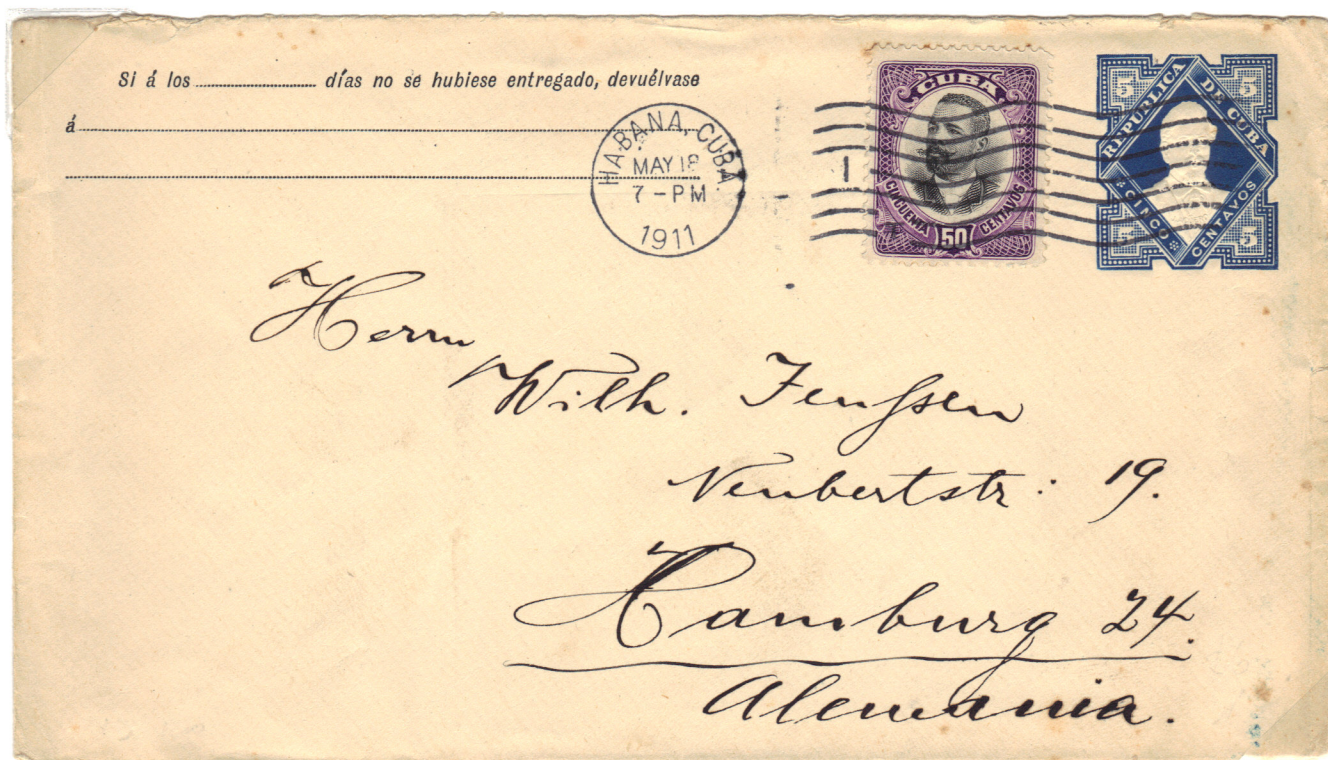 Si á los ........................ días no se hubiese entregado, devuélvase
á
HABANA, CUBA
MAY 18
7 - PM
1911
1
CUBA
CINCUENTA CENTAVOS
50
5 5
REPUBLICA DE CUBA
CINCO CENTAVOS
5 5
Herrn
Wilh. Jenssen
Neubertstr: 19.
Hamburg 24.
Alemania.